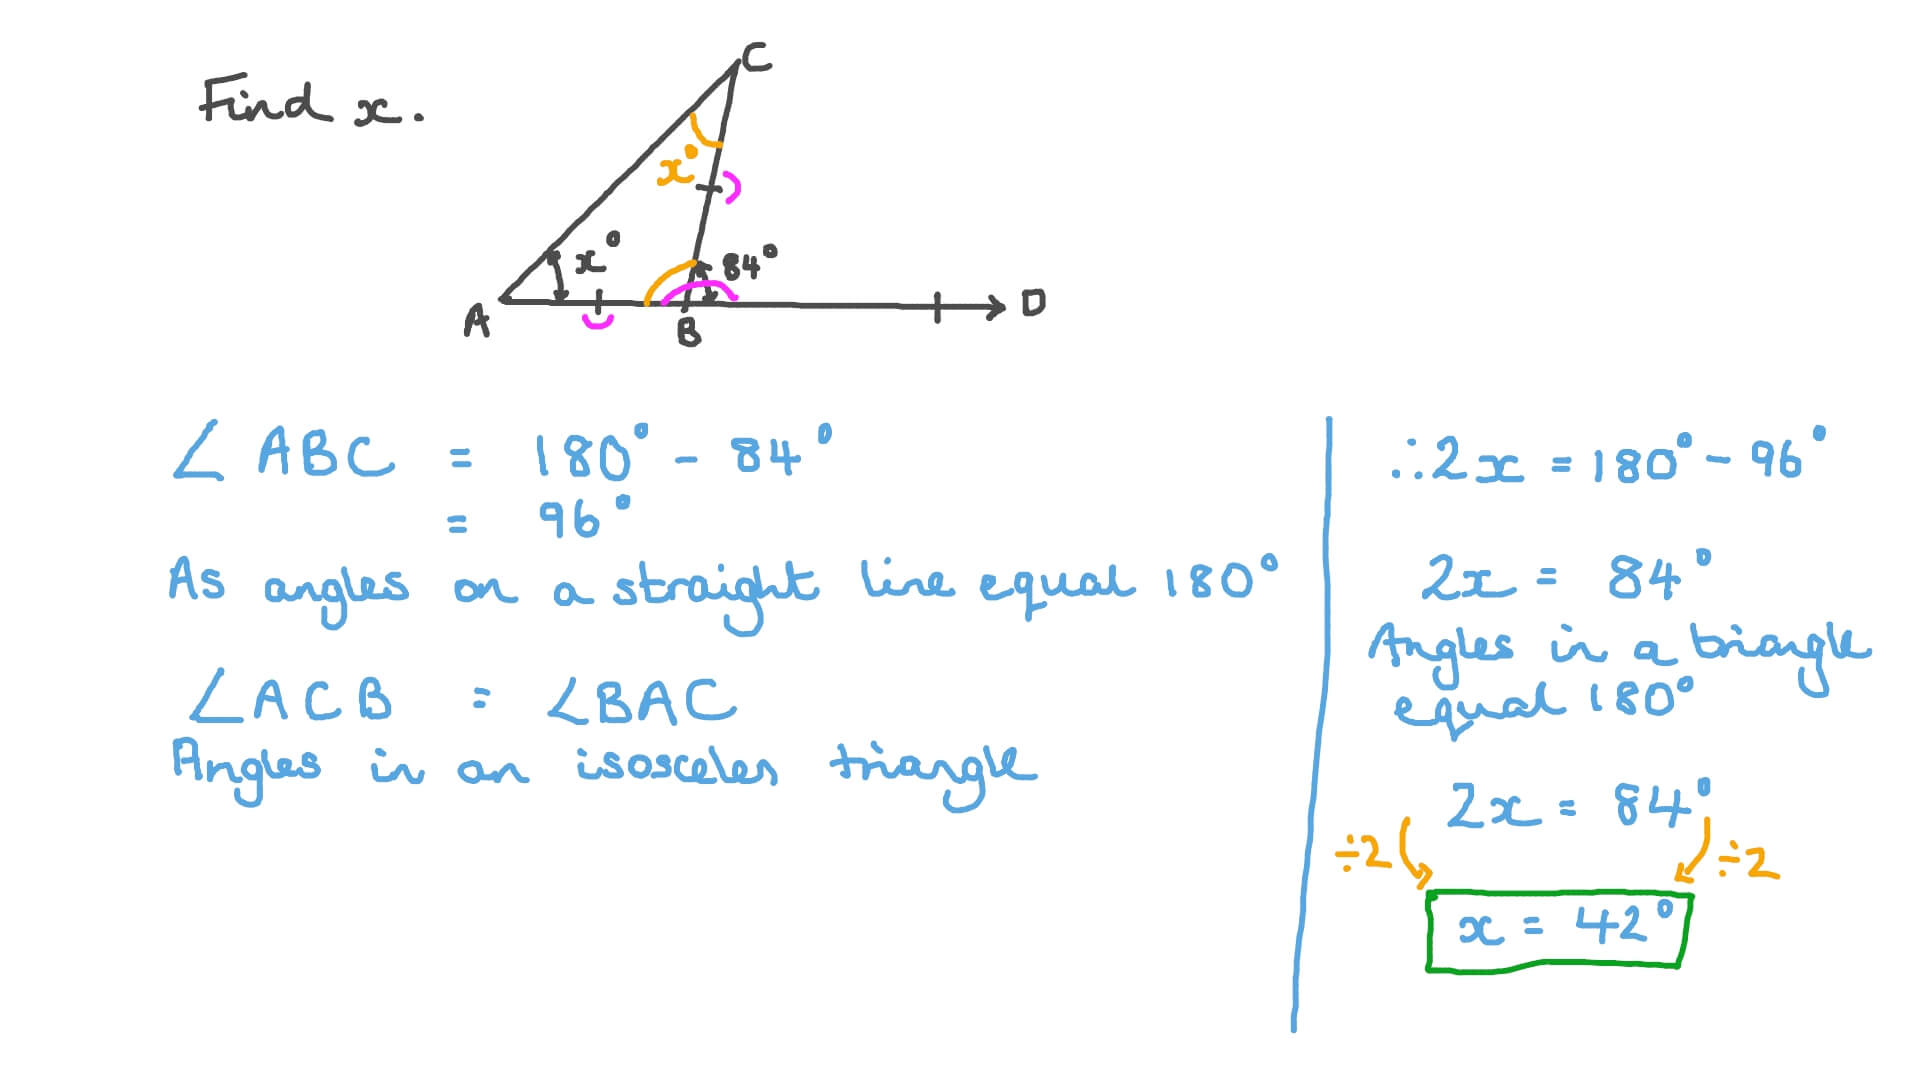 Find x.
C
x°
x°
84°
A
B
D
∠ABC = 180° - 84°
= 96°
As angles on a straight line equal 180°
∠ACB = ∠BAC
Angles in an isosceles triangle
∴2x = 180° - 96°
2x = 84°
Angles in a triangle
equal 180°
2x = 84°
÷2
÷2
x = 42°